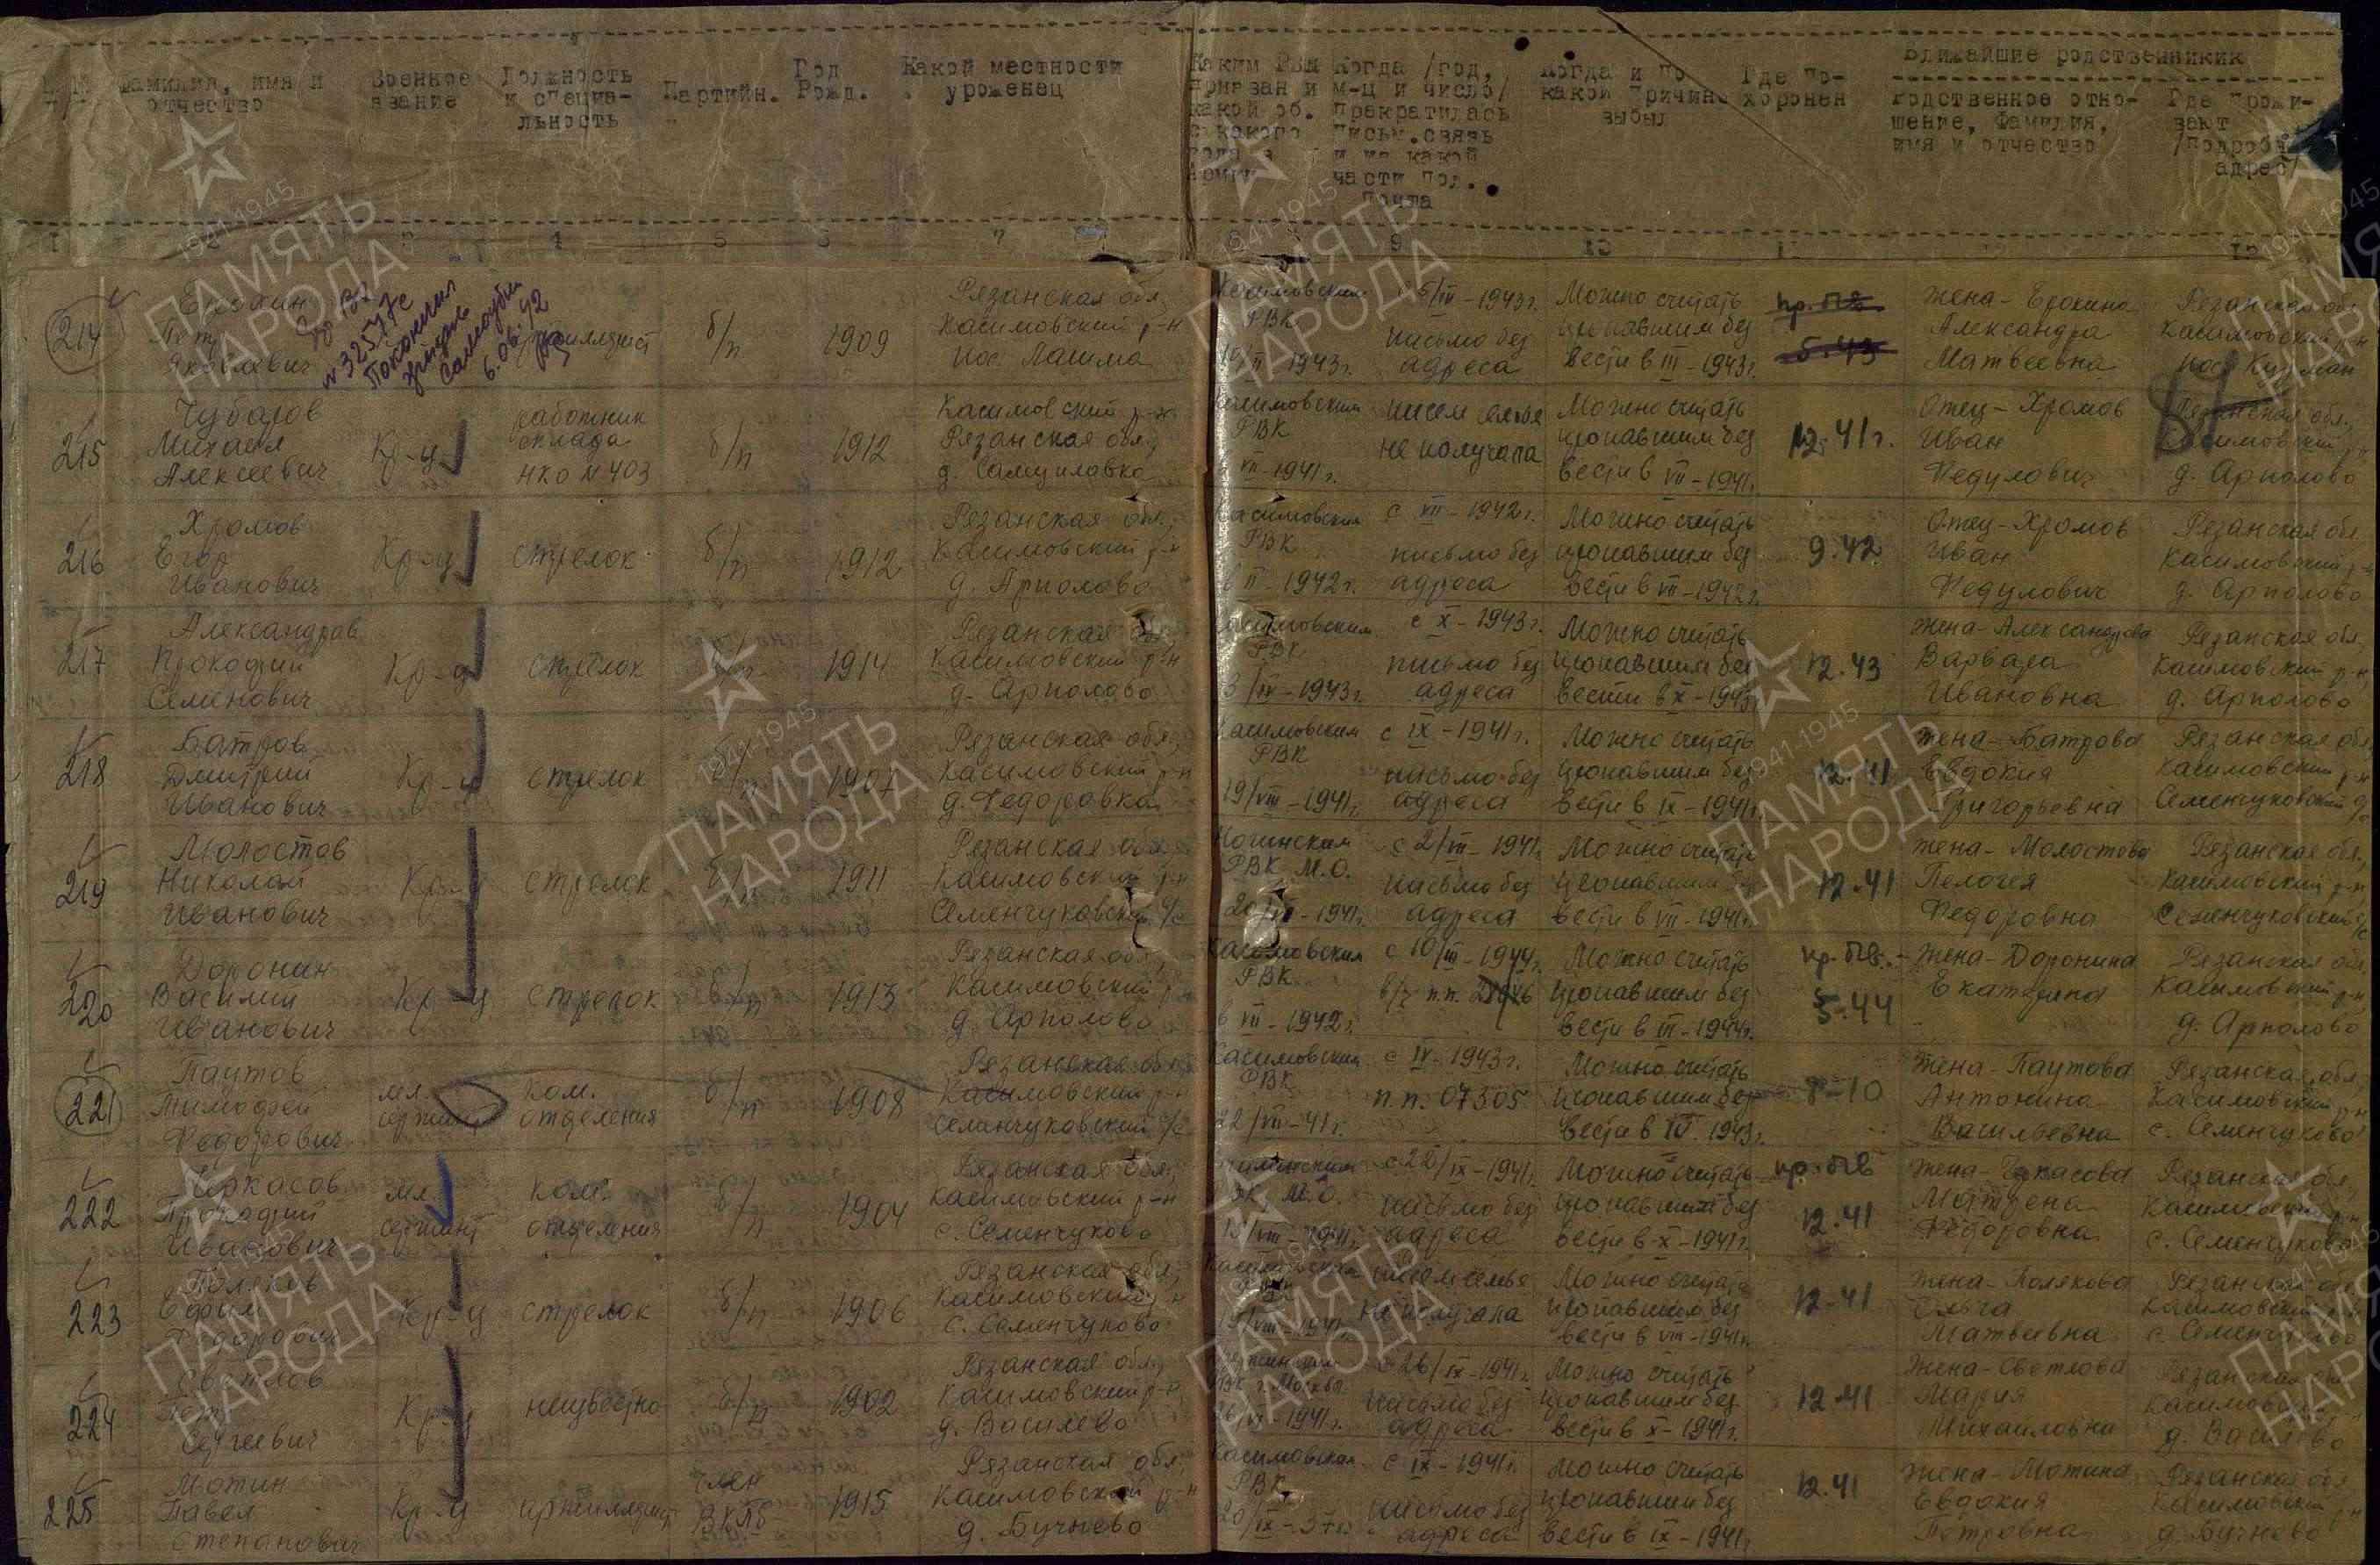 Фамилия, имя и отчество
Военное звание
Должность и специальность
Партийн.
Год Рожд.
Какой местности уроженец
Каким РВК призван и
Когда /год, м-ц и число/ прекратилась письм. связь и из какой части пол. почта
Когда и по какой причине выбыл
Где похоронен
Ближайшие родственникик
Родственное отношение, Фамилия, имя и отчество
Где прожи-
/подробн адрес/
214
Яковлевич
№ 32577с
6.06.92
б/п
1909
Рязанская обл. Касимовский р-н пос. Лашма
РВК
1943г.
письмо без адреса
Можно считать пропавшим без вести в III-1943г.
пр. пв
5.43
жена - Ерохина Александра Матвеевна
Рязанская обл. Касимовский р-н
215
Чубаров Михаил Алексеевич
Кр-ц
работник склада НКО №403
б/п
1912
Касимовский р-н Рязанская обл.,
Касимовским РВК VII-1941г.
писем семья не получала
Можно считать пропавшим без вести в VII-1941г.
12.41г.
Отец - Хромов Иван Федулович
Рязанская обл., Касимовский р-н д. Арполово
216
Хромов Егор Иванович
Кр-ц
стрелок
б/п
1912
Рязанская обл., Касимовский р-н д. Арполово
Касимовским РВК в II-1942г.
с VII-1942г. письмо без адреса
Можно считать пропавшим без вести в VII-1942г.
9.42
Отец - Хромов Иван Федулович
Рязанская обл. Касимовский р-н д. Арполово
217
Александров Прокофий Семенович
Кр-ц
стрелок
б/п
1914
Рязанская обл. Касимовский р-н д. Арполово
Касимовским РВК
1943г.
с X-1943г. письмо без адреса
Можно считать пропавшим без вести в X-1943г.
12.43
жена - Александрова Варвара Ивановна
Рязанская обл., Касимовский р-н, д. Арполово
218
Батров Дмитрий Иванович
Кр-ц
стрелок
б/п
1907
Рязанская обл., Касимовский р-н д. Федоровка
Касимовским РВК 19/VIII-1941г.
с IX-1941г. письмо без адреса
Можно считать пропавшим без вести в IX-1941г.
12.41
жена - Батрова Евдокия Григорьевна
Рязанская обл., Касимовский р-н Семенчуковский
219
Молостов Николай Иванович
Кр-ц
стрелок
б/п
1911
Рязанская обл. Касимовский р-н Семенчуковский с/с
РВК М.О.
1941г.
письмо без адреса
Можно считать пропавшим без вести в VII-1941г.
12.41
жена - Молостова Пелогея Федоровна
Рязанская обл., Касимовский р-н, Семенчуковский с/с
220
Доронин Василий Иванович
Кр-ц
стрелок
б/п
1913
Рязанская обл., Касимовский р-н д. Арполово
Касимовским РВК в VII-1942г.
с 10/III-1944г.
Можно считать пропавшим без вести в III-1944г.
пр. пв.
5.44
жена - Доронина Екатерина
Рязанская обл, Касимовский р-н д. Арполово
221
Паутов Тимофей Федорович
мл. сержант
ком. отделения
б/п
1908
Рязанская обл. Касимовский р-н Семенчуковский с/с
Касимовским РВК 22/VII-41г.
с IV-1943г. п.п. 07305
Можно считать пропавшим без вести в IV.1943г.
8-10
жена - Паутова Антонина Васильевна
Рязанская обл, Касимовский р-н с. Семенчуково
222
Черкасов Прокофий Иванович
мл. сержант
ком. отделения
б/п
1904
Рязанская обл., Касимовский р-н с. Семенчуково
М.О.
с 22/IX-1941г. письмо без адреса
Можно считать пропавшим без вести в X-1941г.
пр. пв
12.41
Матрена Федоровна
Рязанская обл, Касимовский р-н с. Семенчуково
223
Поляков Ефим Федорович
Кр-ц
стрелок
б/п
1906
Рязанская обл, Касимовский р-н с. Семенчуково
писем семья не получала
Можно считать пропавшим без вести в VIII-1941г.
12.41
жена - Полякова Ольга Матвеевна
Рязанская обл Касимовский р-н с. Семенчуково
224
Светлов Петр Сергеевич
Кр-ц
неизвестно
б/п
1902
Рязанская обл, Касимовский р-н д. Василево
РВК г. Москва
1941г.
с 26/IX-1941г. письмо без адреса
Можно считать пропавшим без вести в X-1941г.
12.41
жена - Светлова Мария Михайловна
Рязанская обл Касимовский д. Василево
225
Мотин Павел Степанович
Кр-ц
артиллерист
член ВКПб
1915
Рязанская обл, Касимовский р-н д. Бучнево
Касимовским РВК
с IX-1941г. письмо без адреса
Можно считать пропавшим без вести в IX-1941г.
12.41
жена - Мотина Евдокия Петровна
Рязанская обл Касимовский р-н д. Бучнево
1941-1945
ПАМЯТЬ
НАРОДА